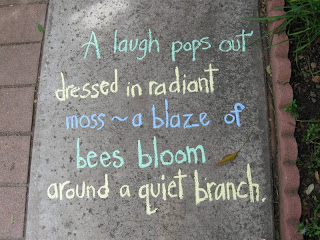 A laugh pops out
dressed in radiant
moss ~ a blaze of
bees bloom
around a quiet branch.